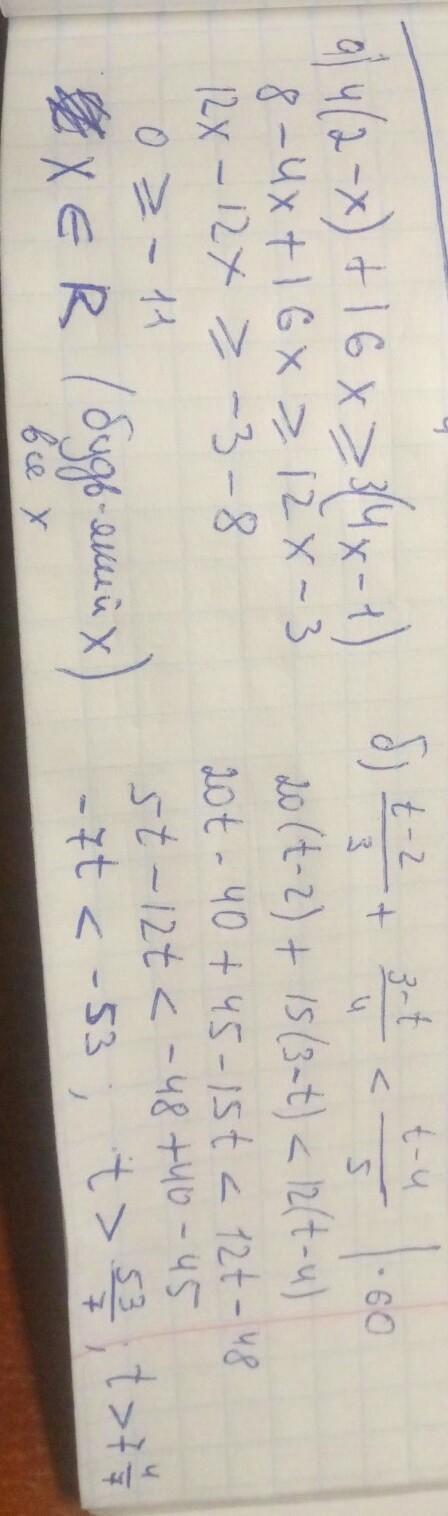 а) 4(2-x)+16x ≥ 3(4x-1)
8-4x+16x ≥ 12x-3
12x-12x ≥ -3-8
0 ≥ -11
x ∈ R (будь-який x)
все x
б) (t-2)/3 + (3-t)/4 < (t-4)/5 | ·60
20(t-2)+15(3-t)<12(t-4)
20t-40+45-15t<12t-48
5t-12t<-48+40-45
-7t<-53; t>53/7; t>7 4/7